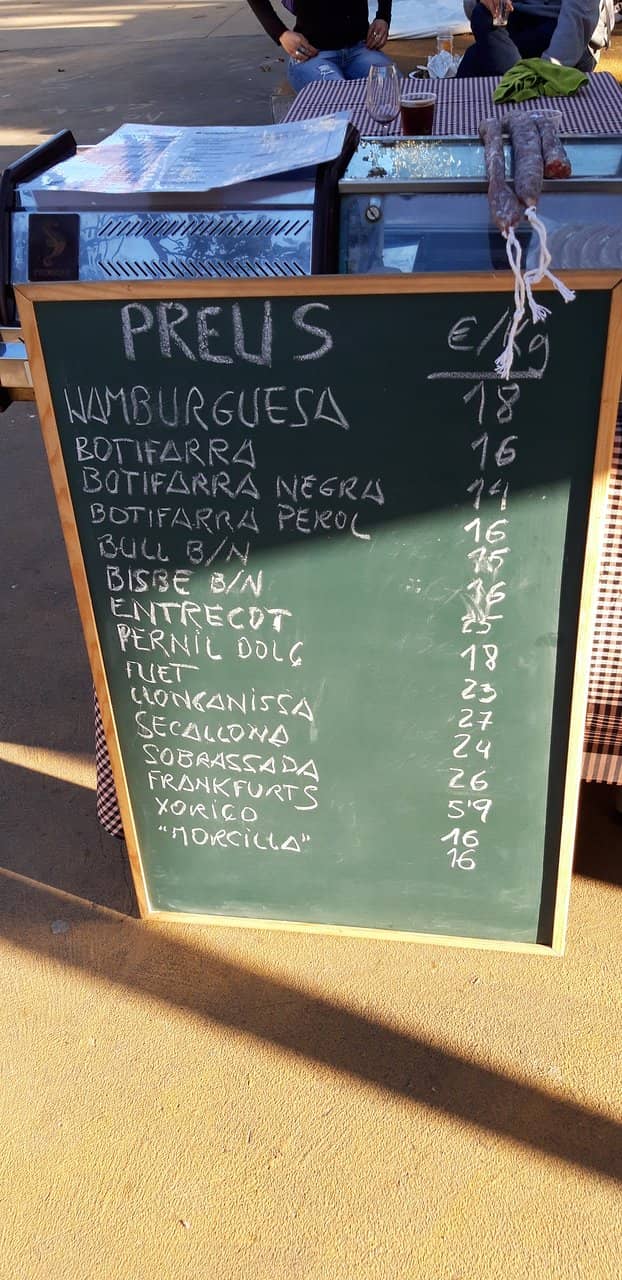 PREUS €/Kg
HAMBURGUESA 18
BOTIFARRA 16
BOTIFARRA NEGRA 14
BOTIFARRA PEROL 16
BULL B/N 15
BISBE B/N 16
ENTRECOT 25
PERNIL DOLÇ 18
FUET 23
LLONGANISSA 27
SECALLONA 24
SOBRASSADA 26
FRANKFURTS 5'9
XORIÇO 16
"MORCILLA" 16